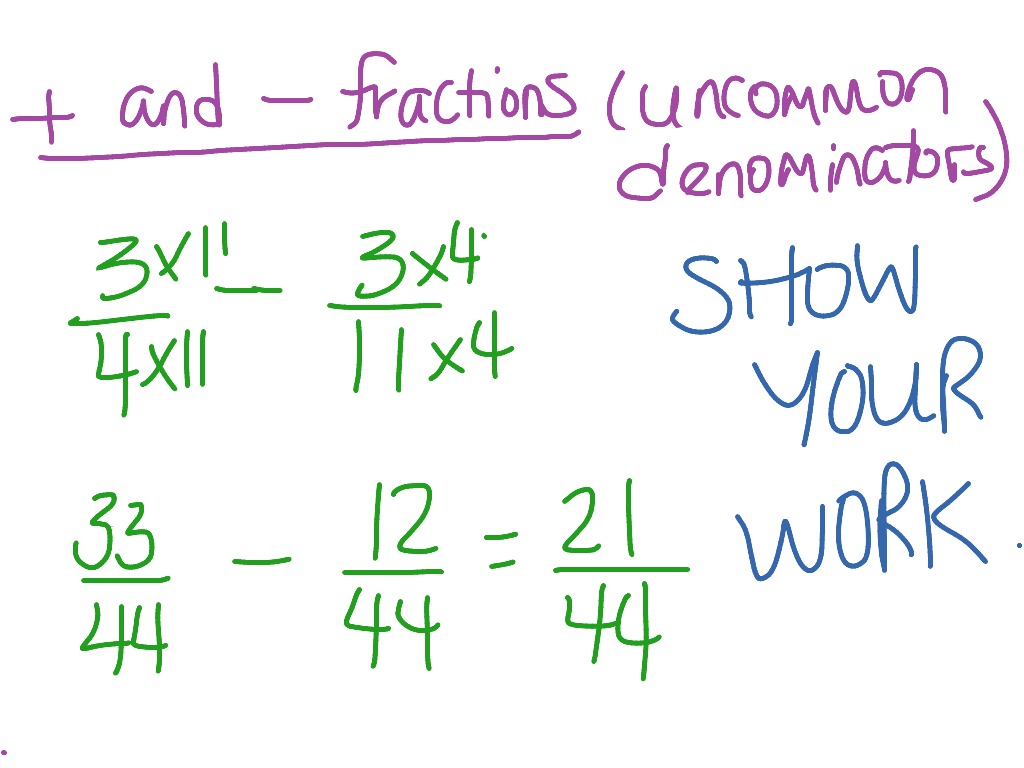 + and - fractions (uncommon
denominators)
3x11 - 3x4
4x11 11x4
SHOW
YOUR
WORK
33 - 12 = 21
44 44 44